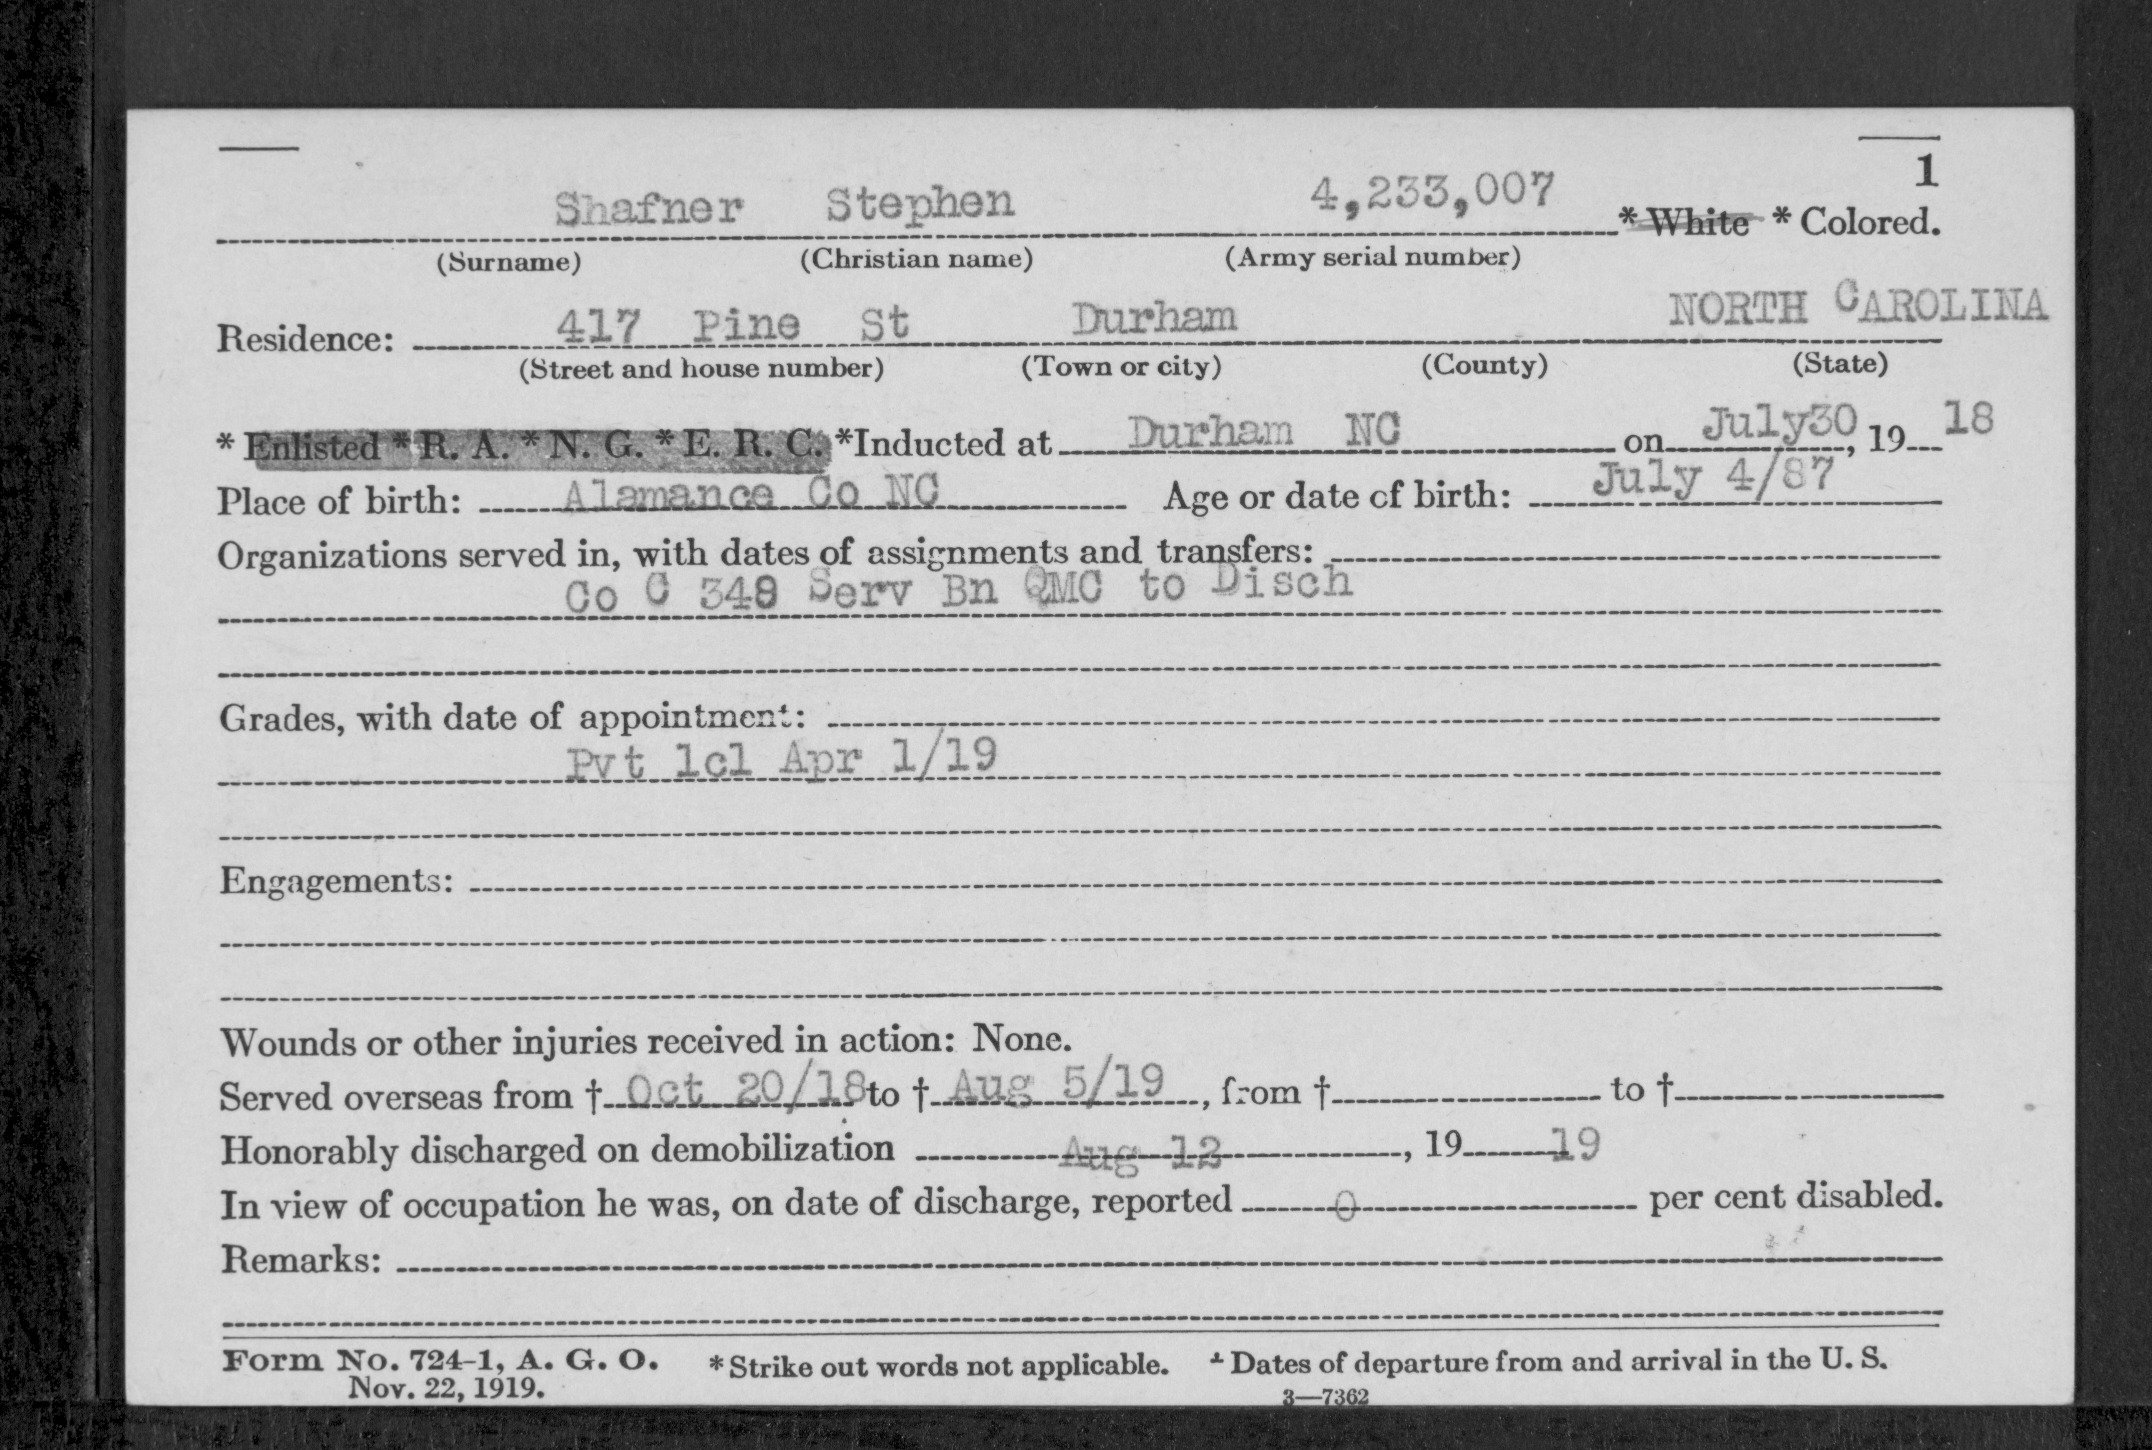 1
Shafner Stephen 4,233,007 * White * Colored.
(Surname) (Christian name) (Army serial number)
Residence: 417 Pine St Durham NORTH CAROLINA
(Street and house number) (Town or city) (County) (State)
* Enlisted * R. A. * N. G. * E. R. C. *Inducted at Durham NC on July30, 19 18
Place of birth: Alamance Co NC Age or date of birth: July 4/87
Organizations served in, with dates of assignments and transfers:
Co C 348 Serv Bn QMC to Disch
Grades, with date of appointment:
Pvt 1cl Apr 1/19
Engagements:
Wounds or other injuries received in action: None.
Served overseas from † Oct 20/18 to † Aug 5/19, from † to †
Honorably discharged on demobilization Aug 12, 19 19
In view of occupation he was, on date of discharge, reported 0 per cent disabled.
Remarks:
Form No. 724-1, A. G. O. * Strike out words not applicable. † Dates of departure from and arrival in the U. S.
Nov. 22, 1919. 3—7362